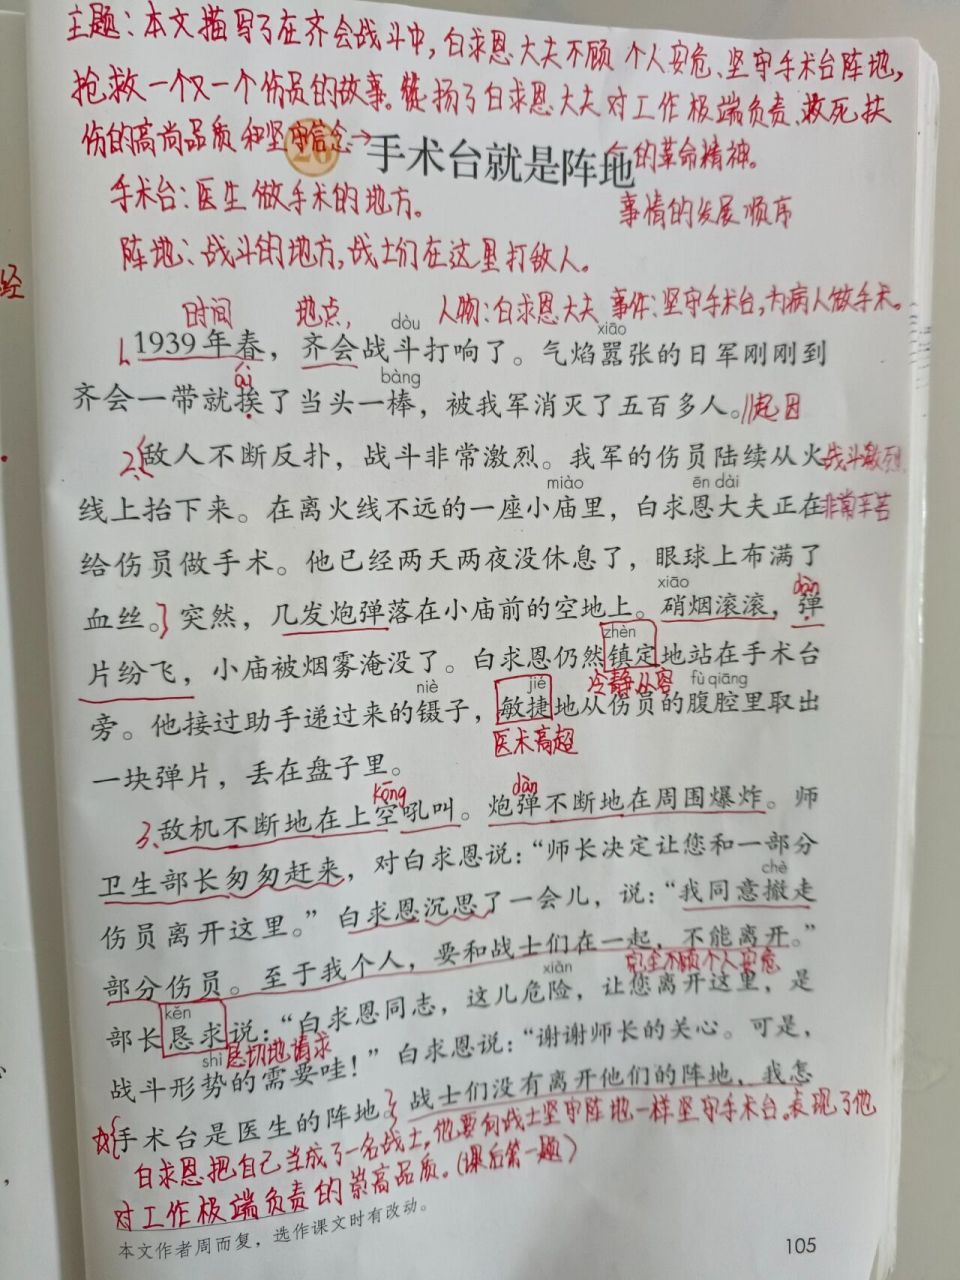 主题：本文描写了在齐会战斗中，白求恩大夫不顾个人安危、坚守手术台阵地，
抢救一个又一个伤员的故事。赞扬了白求恩大夫对工作极端负责、救死扶
伤的高尚品质和坚守信念→的革命精神。
26 手术台就是阵地
手术台：医生做手术的地方。
事情的发展顺序
阵地：战斗的地方，战士们在这里打敌人。
经
时间 地点， 人物：白求恩大夫 事件：坚守手术台，为病人做手术。
dòu xiāo
1、1939年春，齐会战斗打响了。气焰嚣张的日军刚刚到
ái bàng
齐会一带就挨了当头一棒，被我军消灭了五百多人。//起因
2、敌人不断反扑，战斗非常激烈。我军的伤员陆续从火 战斗激烈
miào ēn dài
线上抬下来。在离火线不远的一座小庙里，白求恩大夫正在 非常辛苦
给伤员做手术。他已经两天两夜没休息了，眼球上布满了
xiāo dàn
血丝。突然，几发炮弹落在小庙前的空地上。硝烟滚滚，弹
zhèn
片纷飞，小庙被烟雾淹没了。白求恩仍然镇定地站在手术台
冷静从容
niè jié fù qiāng
旁。他接过助手递过来的镊子，敏捷地从伤员的腹腔里取出
医术高超
一块弹片，丢在盘子里。
kōng dàn
3、敌机不断地在上空吼叫。炮弹不断地在周围爆炸。师
卫生部长匆匆赶来，对白求恩说：“师长决定让您和一部分
chè
伤员离开这里。”白求恩沉思了一会儿，说：“我同意撤走
部分伤员。至于我个人，要和战士们在一起，不能离开。”
完全不顾个人安危
kěn xiǎn
部长恳求说：“白求恩同志，这儿危险，让您离开这里，是
shì 恳切地请求
战斗形势的需要哇！”白求恩说：“谢谢师长的关心。可是，
手术台是医生的阵地。战士们没有离开他们的阵地，我怎
白求恩把自己当成了一名战士，他要向战士坚守阵地一样坚守手术台。表现了他
对工作极端负责的崇高品质。（课后第一题）
本文作者周而复，选作课文时有改动。
105